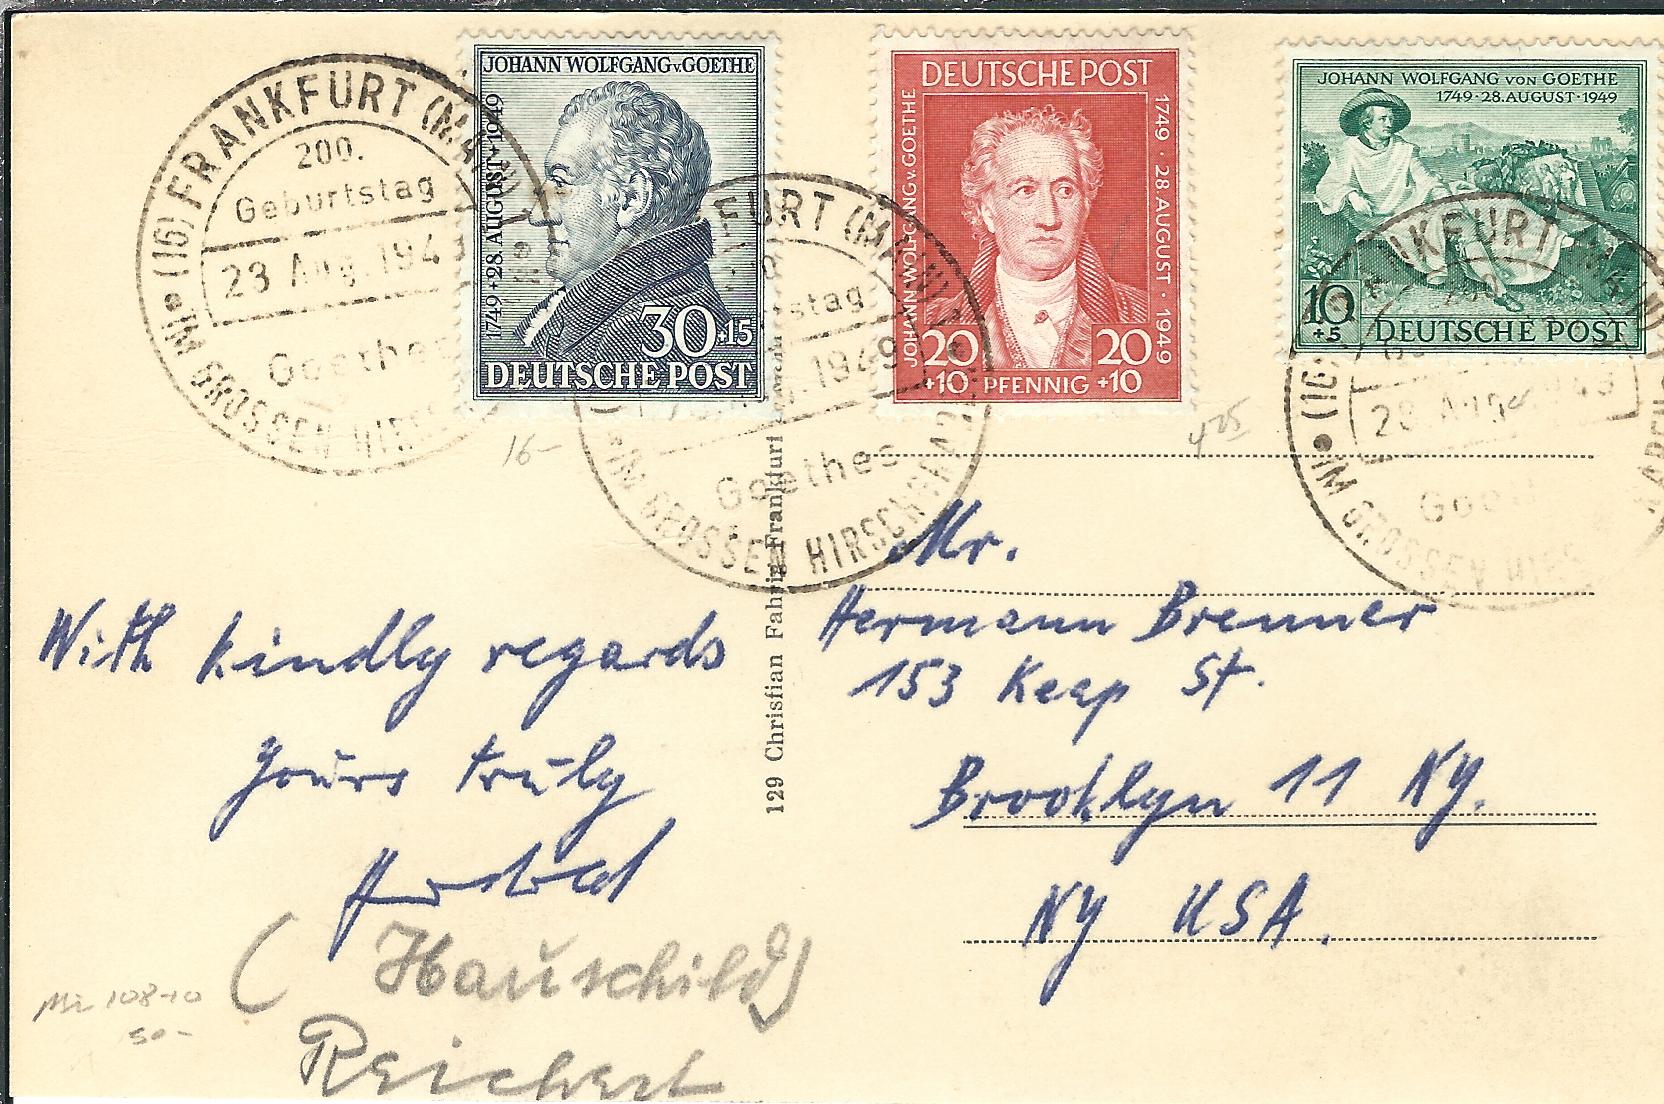 JOHANN WOLFGANG v. GOETHE
1749 + 28. AUGUST + 1949
30+15
DEUTSCHE POST
DEUTSCHE POST
JOHANN WOLFGANG v. GOETHE
1749 · 28. AUGUST · 1949
20 20
+10 PFENNIG +10
JOHANN WOLFGANG VON GOETHE
1749 · 28. AUGUST · 1949
10
+5
DEUTSCHE POST
(16) FRANKFURT (MAIN)
200.
Geburtstag
28 Aug. 1949
Goethes
IM GROSSEN HIRSCHGRABEN
FURT (MAIN)
stag
1949
Goethes
IM GROSSEN HIRSCHGRABEN
(16) FRANKFURT (MAIN)
200
28. Aug. 1949
Goeth
IM GROSSEN HIRS
16-
4 25
129 Christian Fahrig Frankfurt
With kindly regards
yours truly
(Hauschild)
Reichert
Mi 108-10
50-
Mr.
Hermann Brenner
153 Keap St.
Brooklyn 11 NY.
NY USA.